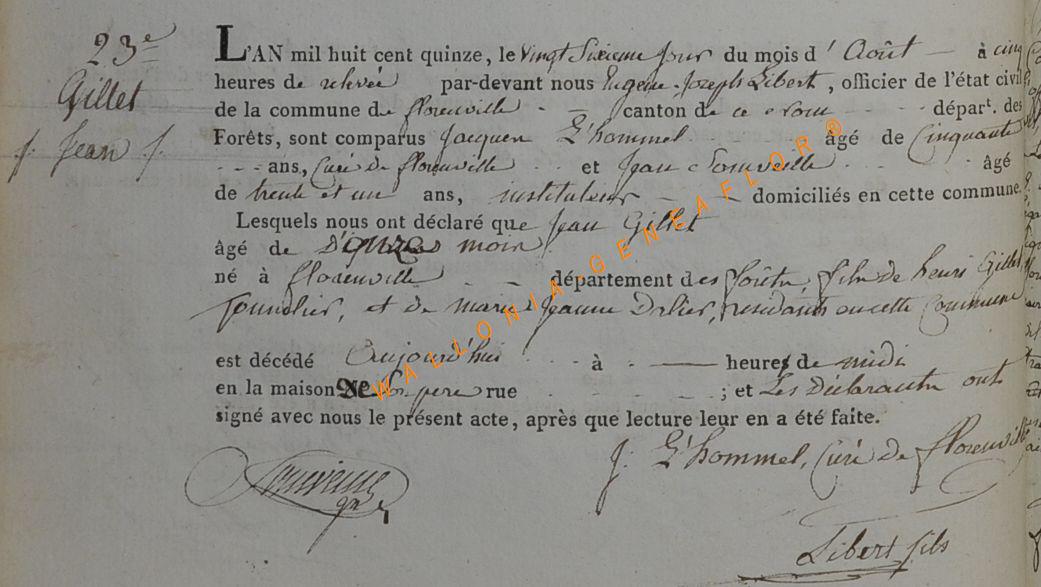 23e
Gillet
Jean
L'AN mil huit cent quinze, le Vingt Sixieme jour du mois d' Août à cinq
heures de relevée par-devant nous Eugene-Joseph Libert, officier de l'état civil
de la commune de florenville canton de ce nom départ. des
Forêts, sont comparus Jacques L'hommel âgé de Cinquante
ans, Curé de florenville et Jean Somveille âgé
de trente et un ans, instituteur domiciliés en cette commune.
Lesquels nous ont déclaré que Jean Gillet
âgé de Quinze mois
né à florenville département des forêts, fils de henri Gillet
journalier, et de marie Jeanne Delier, residants en cette Commune
est décédé Aujourd'hui à heures de midi
en la maison De son pere rue ; et Les Déclarants ont
signé avec nous le présent acte, après que lecture leur en a été faite.
J. L'hommel, Curé de florenville
Libert fils
WALLONIA-GENEAFLOR®